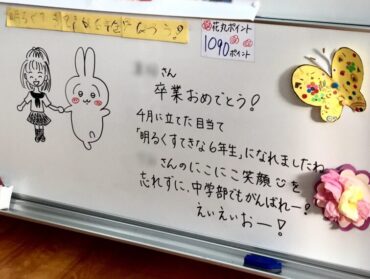 花丸ポイント
1090ポイント
さん
卒業おめでとう!
4月に立てた目当て
「明るくすてきな6年生」になれましたね
さんのにこにこ笑顔を
忘れずに、中学部でもがんばれー!
えいえいおー!